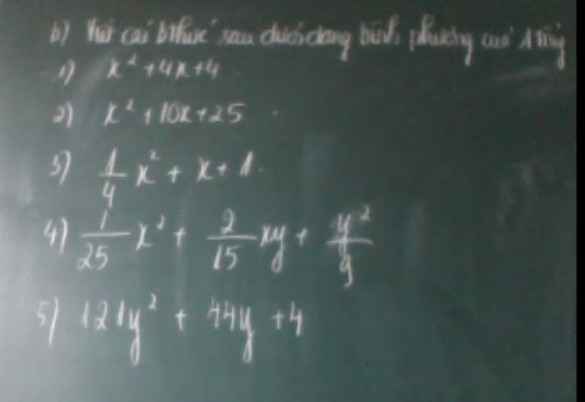 b) Viết các bthức sau dưới dạng bình phương của 1 tổng
1) x² + 4x + 4
2) x² + 10x + 25
3) 1/4 x² + x + 1.
4) 1/25 x² + 2/15 xy + y²/9
5) 121y² + 44y + 4